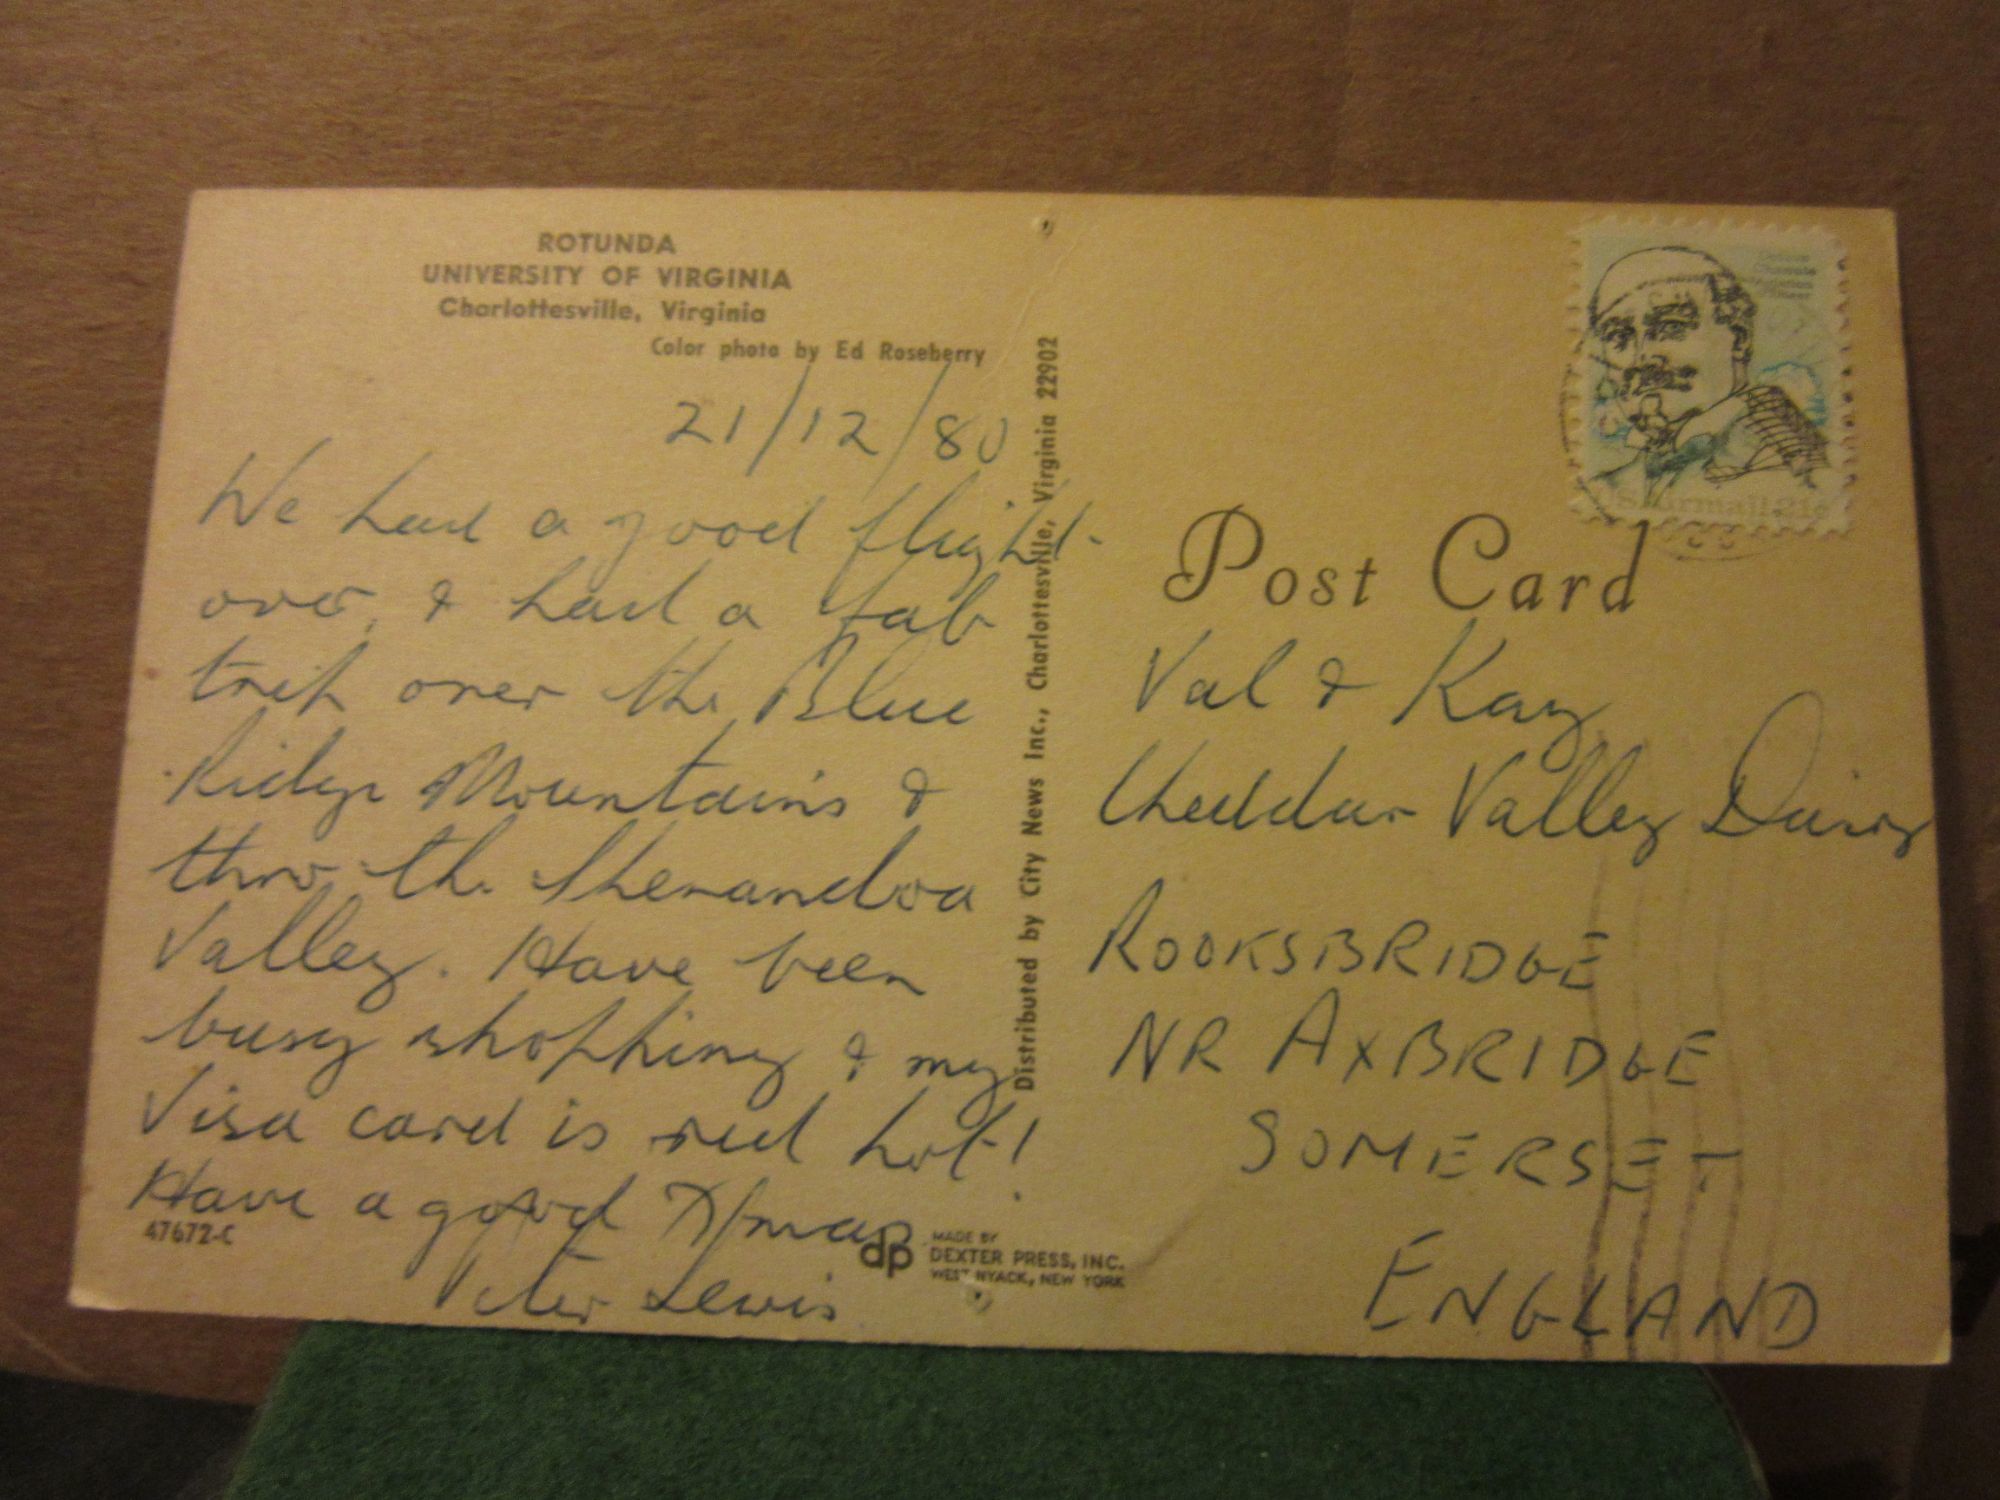 ROTUNDA
UNIVERSITY OF VIRGINIA
Charlottesville, Virginia
Color photo by Ed Roseberry
21/12/80
We had a good flight
over, & had a fab
trip over the Blue
Ridge Mountains &
thro the Shenandoa
Valley. Have been
busy shopping & my
Visa card is red hot!
Have a good Xmas
Peter Lewis
47672-C
dp MADE BY
DEXTER PRESS, INC.
WEST NYACK, NEW YORK
Distributed by City News Inc., Charlottesville, Virginia 22902
Octave
Chanute
Aviation
Pioneer
USAirmail 21c
Post Card
Val & Kay
Cheddar Valley Dairy
ROOKSBRIDGE
NR AXBRIDGE
SOMERSET
ENGLAND